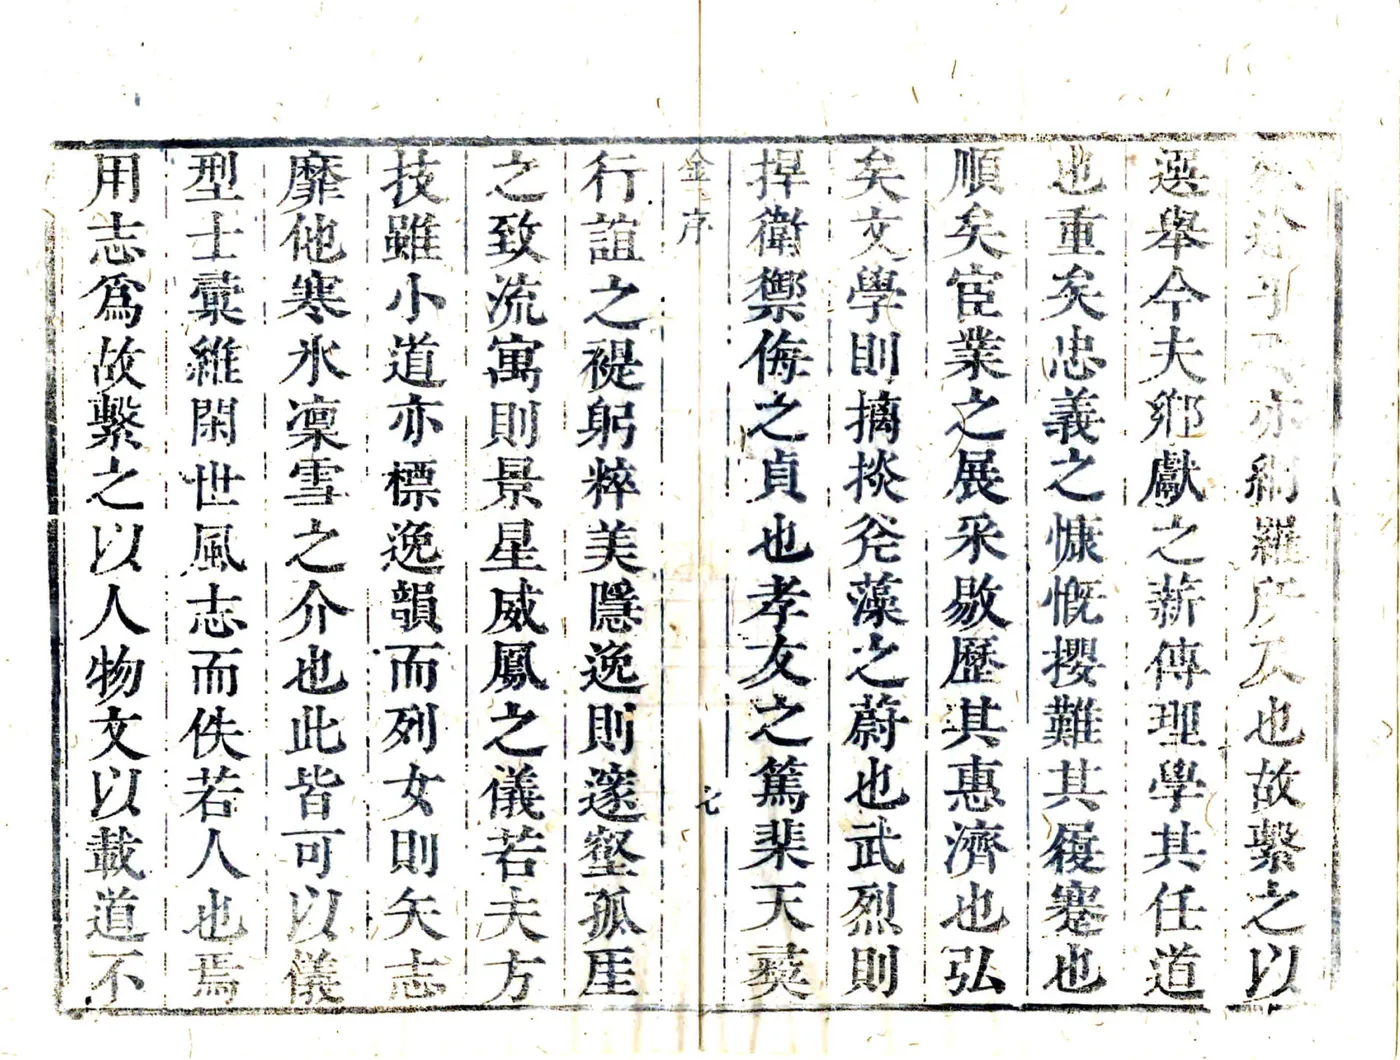 亦網羅所及也故繫之以
選舉今夫鄉獻之薪傳理學其任道
也重矣忠義之慷慨攖難其履蹇也
順矣宦業之展采敭歷其惠濟也弘
矣文學則摛掞㡯藻之蔚也武烈則
捍衛禦侮之貞也孝友之篤棐天彝
金序
七
行誼之禔躬粹美隱逸則邃壑孤厓
之致流寓則景星威鳳之儀若夫方
技雖小道亦標逸韻而列女則矢志
靡他寒氷凜雪之介也此皆可以儀
型士彙維閑世風志而佚若人也焉
用志爲故繫之以人物文以載道不